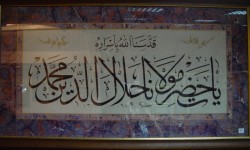 قدسنا الله بأسراره
يا حضرت مولانا جلال الدين محمد